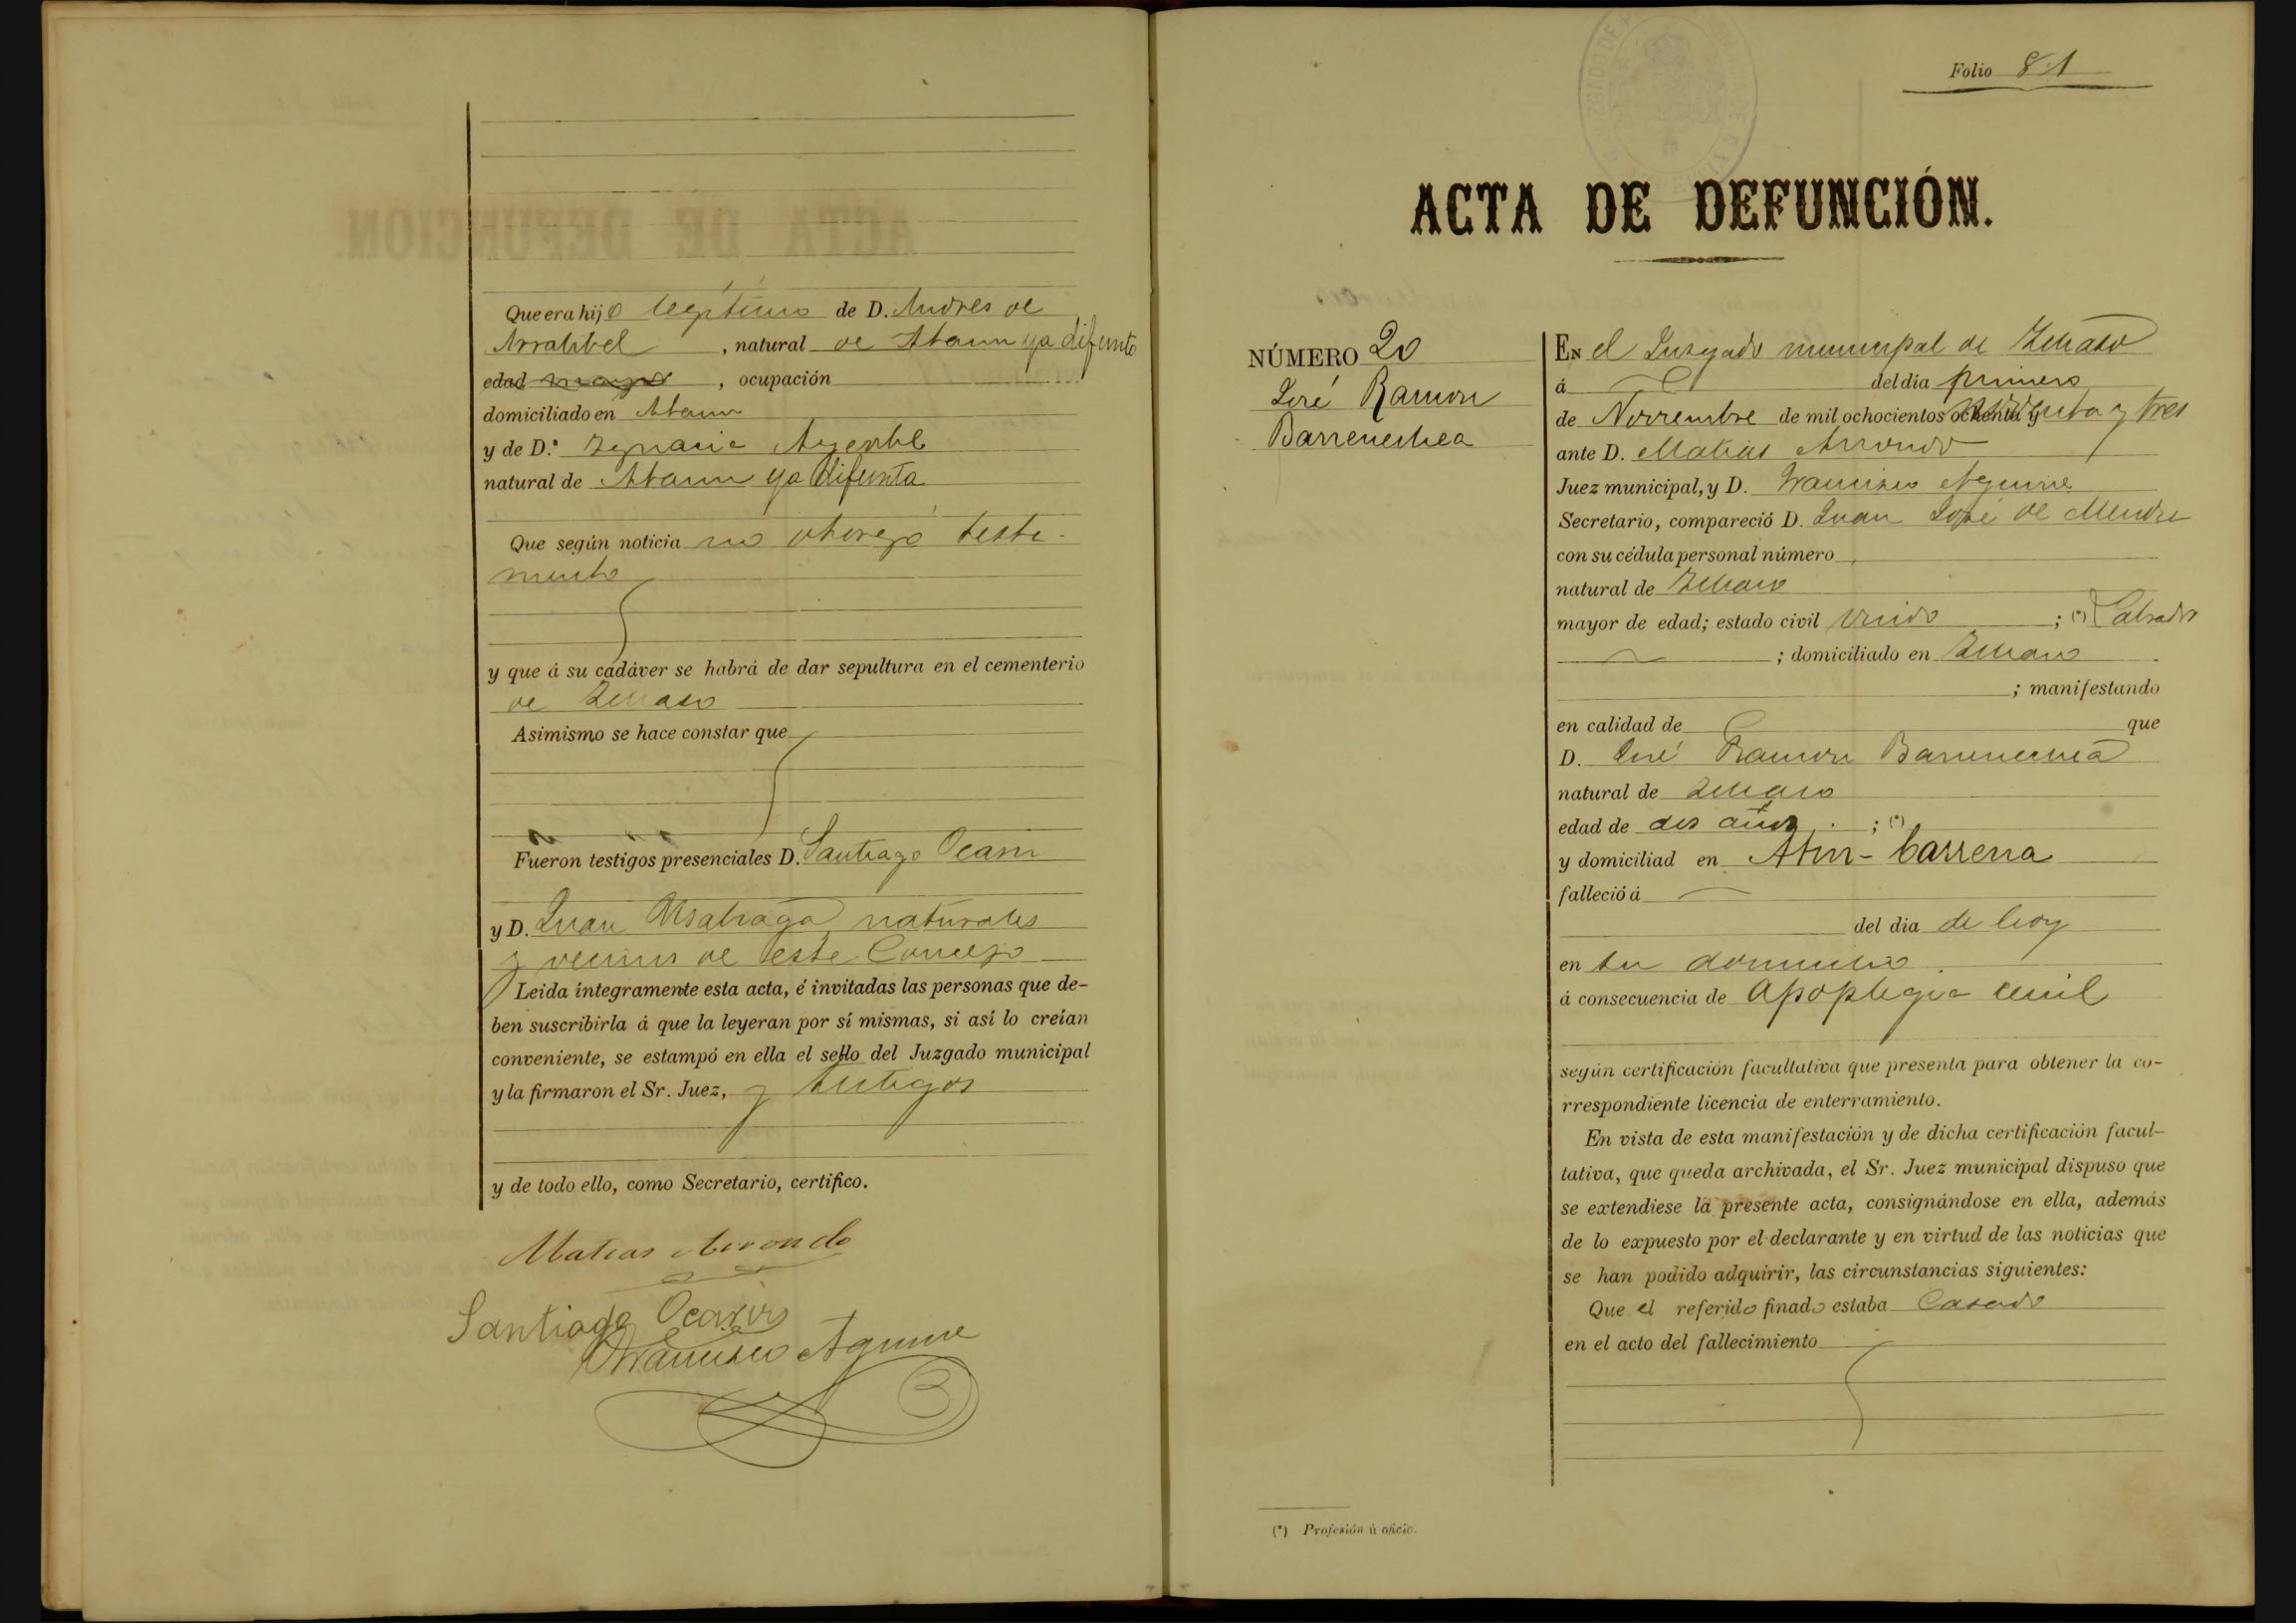 Que era hijo legitimo de D. Andres de
Arratibel, natural de Ataun ya difunto
edad, ocupación
domiciliado en Ataun
y de D.ª Ignacia
natural de Ataun ya difunta
Que según noticia no otorgó testa-
mento
y que á su cadáver se habrá de dar sepultura en el cementerio
de
Asimismo se hace constar que
Fueron testigos presenciales D. Santiago Ocariz
y D. Juan naturales
y vecinos de este Concejo
Leida íntegramente esta acta, é invitadas las personas que de-
ben suscribirla á que la leyeran por sí mismas, si así lo creían
conveniente, se estampó en ella el sello del Juzgado municipal
y la firmaron el Sr. Juez, y testigos
y de todo ello, como Secretario, certifico.
Matias Arrondo
Santiago Ocariz
Francisco Aguirre
Folio 81
ACTA DE DEFUNCIÓN.
NÚMERO 20
José Ramon
Barrenechea
EN el Juzgado municipal de
á del dia primero
de Noviembre de mil ochocientos ochenta y noventa y tres
ante D. Matias Arrondo
Juez municipal, y D. Francisco Aguirre
Secretario, compareció D. Juan José de
con su cédula personal número
natural de
mayor de edad; estado civil viudo ; (*) Labrador
; domiciliado en
; manifestando
en calidad de que
D. José Ramon Barrenechea
natural de
edad de dos años ; (*)
y domiciliad en
falleció á
del dia de hoy
en su domicilio
á consecuencia de Apoplegia
según certificación facultativa que presenta para obtener la co-
rrespondiente licencia de enterramiento.
En vista de esta manifestación y de dicha certificación facul-
tativa, que queda archivada, el Sr. Juez municipal dispuso que
se extendiese la presente acta, consignándose en ella, además
de lo expuesto por el declarante y en virtud de las noticias que
se han podido adquirir, las circunstancias siguientes:
Que el referido finado estaba Casado
en el acto del fallecimiento
(*) Profesión ú oficio.